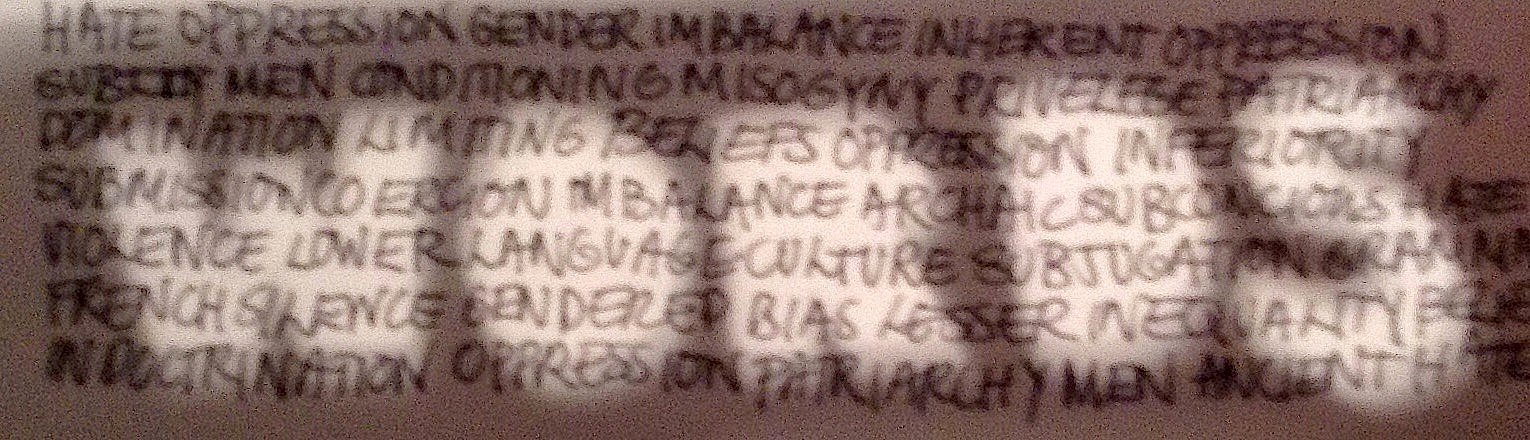 HATE OPPRESSION GENDER IMBALANCE INHERENT OPPRESSION
MEN CONDITIONING MISOGYNY PRIVELEGE PATRIARCHY
DOMINATION LIMITING BELIEFS OPPRESSION INFERIORITY
SUBMISSION COERCION IMBALANCE ARCHAIC
VIOLENCE LOWER LANGUAGE CULTURE SUBJUGATION
FRENCH SILENCE GENDERED BIAS LESSER INEQUALITY
INDOCTRINATION OPPRESSION PATRIARCHY MEN ANCIENT HATE